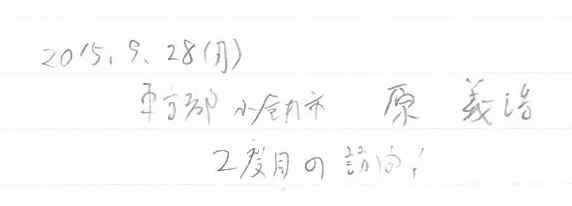 2015.9.28(月)
東京都 小金井市 原 義浩
2度目の訪問!